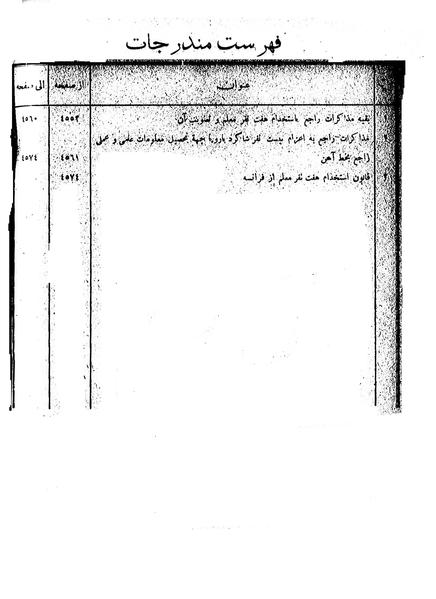 فهرست مندرجات
عنوان از صفحه الی صفحه
بقیه مذاکرات راجع باستخدام هفت نفر معلم و تصویب آن ٤٥٥٢ ٤٥٦٠
مذاکرات راجع به اعزام بیست نفر شاگرد باروپا بجهة تحصیل معلومات علمی و عملی
راجع بخط آهن ٤٥٦١ ٤٥٧٤
قانون استخدام هفت نفر معلم از فرانسه ٤٥٧٤